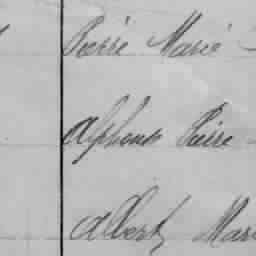 Pierre Marie
Alphonse Pierre
Albert Mari